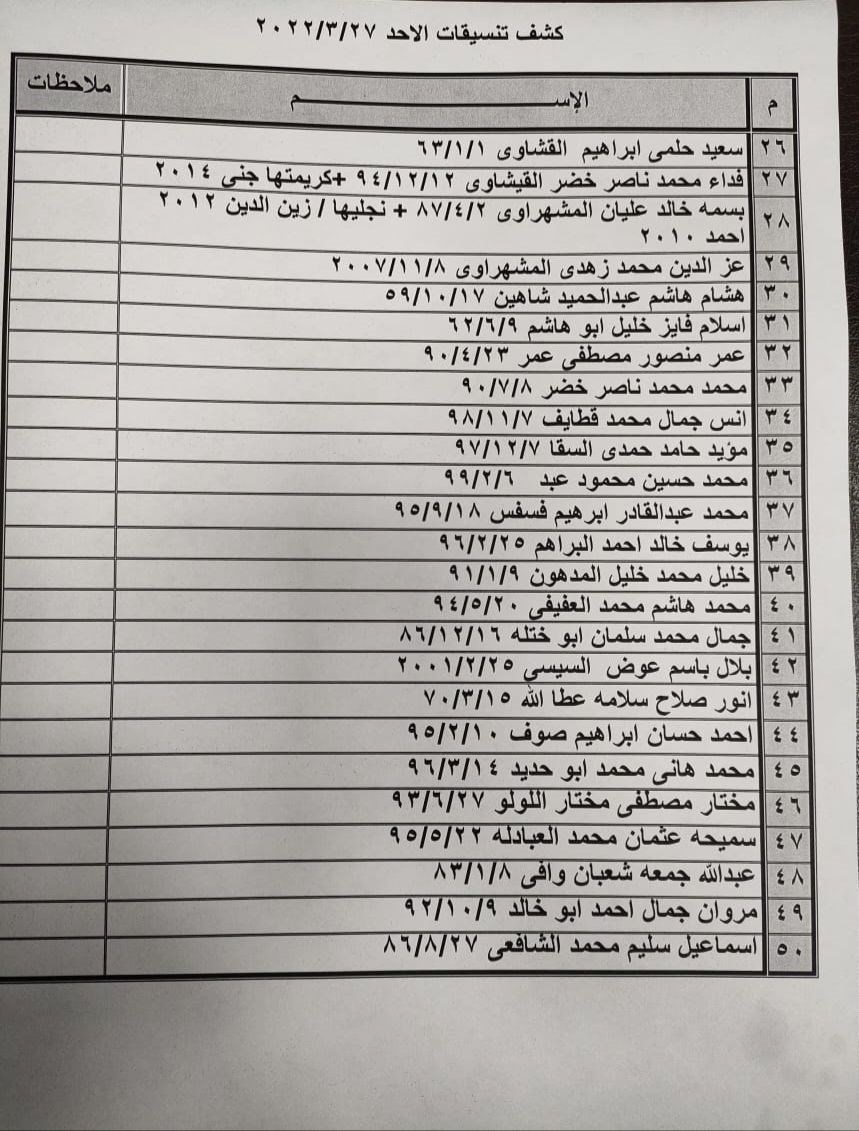 كشف تنسيقات الاحد ٢٠٢٢/٣/٢٧
م الإســـم ملاحظات
٢٦ سعيد حلمى ابراهيم القشاوى ٦٣/١/١
٢٧ فداء محمد ناصر خضر القيشاوى ٩٤/١٢/١٢ +كريمتها جنى ٢٠١٤
٢٨ بسمه خالد عليان المشهراوى ٨٧/٤/٢ + نجليها / زين الدين ٢٠١٢
احمد ٢٠١٠
٢٩ عز الدين محمد زهدى المشهراوى ٢٠٠٧/١١/٨
٣٠ هشام هاشم عبدالحميد شاهين ٥٩/١٠/١٧
٣١ اسلام فايز خليل ابو هاشم ٦٢/٦/٩
٣٢ عمر منصور مصطفى عمر ٩٠/٤/٢٣
٣٣ محمد محمد ناصر خضر ٩٠/٧/٨
٣٤ انس جمال محمد قطايف ٩٨/١١/٧
٣٥ مؤيد حامد حمدى السقا ٩٧/١٢/٧
٣٦ محمد حسين محمود عبد ٩٩/٢/٦
٣٧ محمد عبدالقادر ابرهيم فسفس ٩٥/٩/١٨
٣٨ يوسف خالد احمد البراهم ٩٦/٢/٢٥
٣٩ خليل محمد خليل المدهون ٩١/١/٩
٤٠ محمد هاشم محمد العفيفى ٩٤/٥/٢٠
٤١ جمال محمد سلمان ابو ختله ٨٦/١٢/١٦
٤٢ بلال باسم عوض السيسي ٢٠٠١/٢/٢٥
٤٣ انور صلاح سلامه عطا الله ٧٠/٣/١٥
٤٤ احمد حسان ابراهيم صوف ٩٥/٢/١٠
٤٥ محمد هانى محمد ابو حديد ٩٦/٣/١٤
٤٦ مختار مصطفى مختار اللولو ٩٣/٦/٢٧
٤٧ سميحه عثمان محمد العبادله ٩٥/٥/٢٢
٤٨ عبدالله جمعه شعبان وافى ٨٣/١/٨
٤٩ مروان جمال احمد ابو خالد ٩٢/١٠/٩
٥٠ اسماعيل سليم محمد الشافعى ٨٦/٨/٢٧